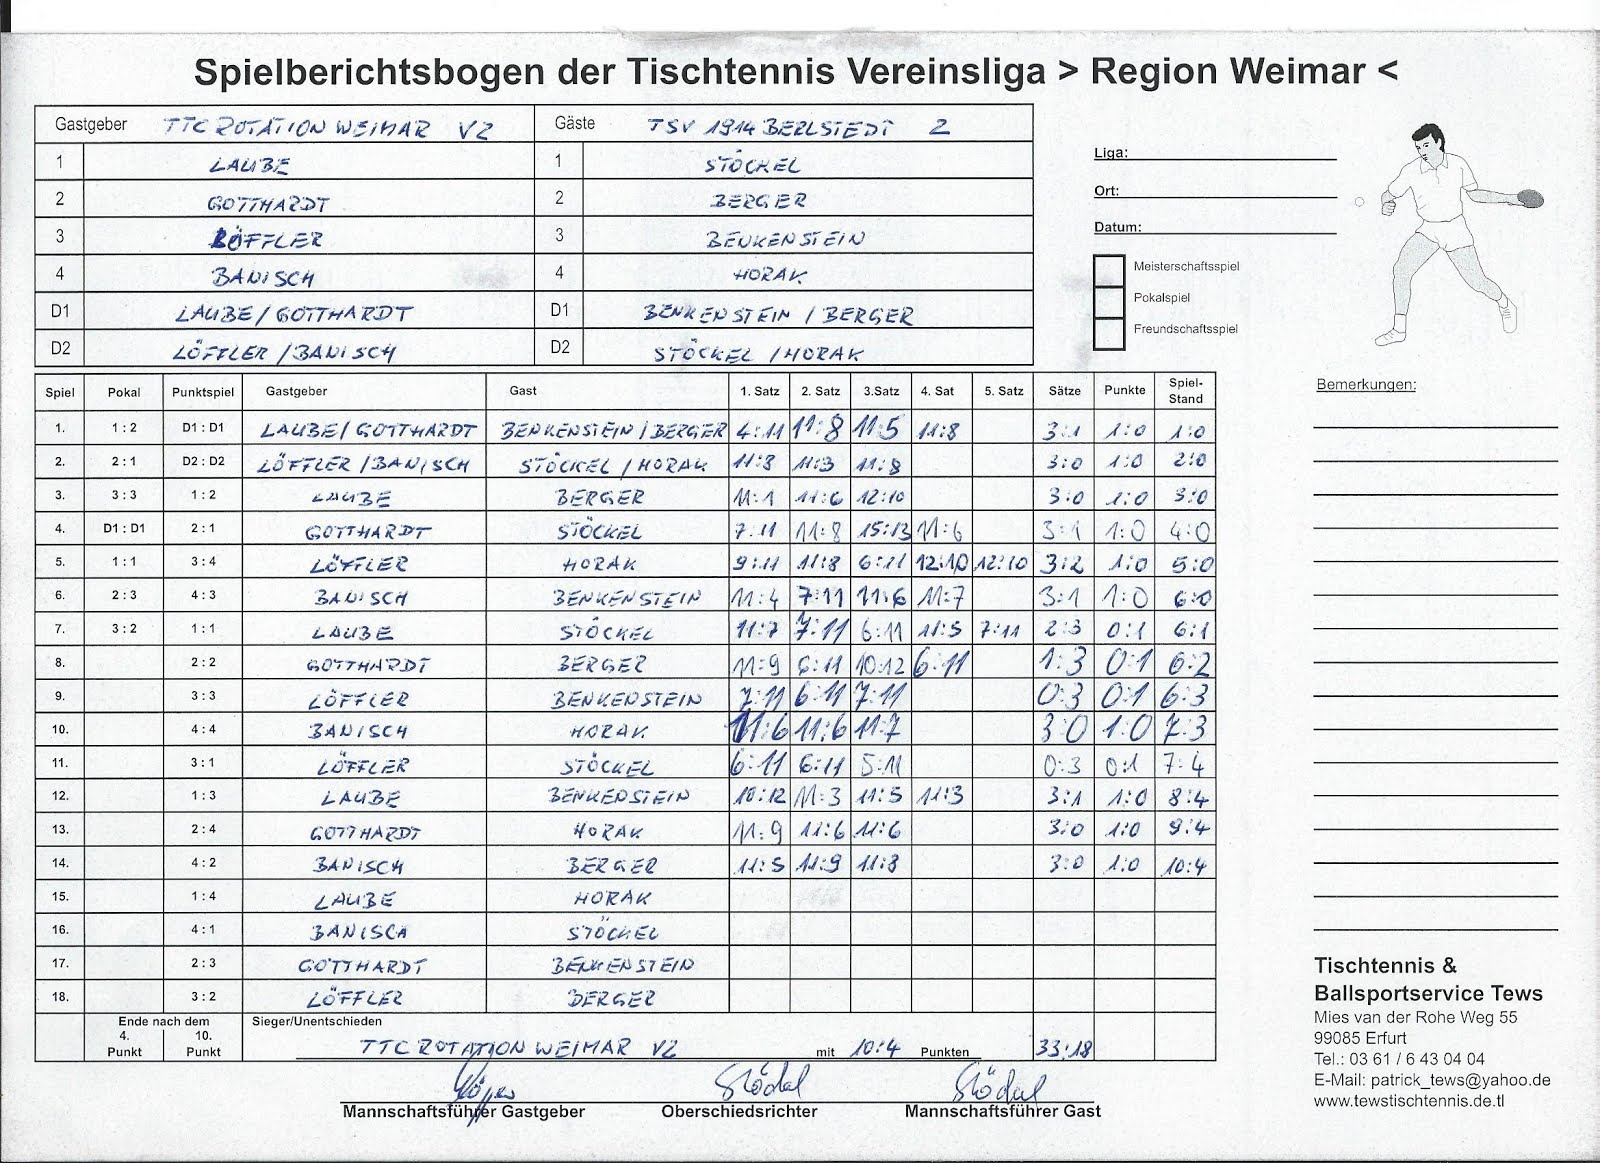 Spielberichtsbogen der Tischtennis Vereinsliga > Region Weimar <
Gastgeber TTC ROTATION WEIMAR V2 Gäste TSV 1914 BERLSTEDT 2
1 LAUBE 1 STÖCKEL
2 GOTTHARDT 2 BERGER
3 LÖFFLER 3 BENKENSTEIN
4 BANISCH 4 HORAK
D1 LAUBE/GOTTHARDT D1 BENKENSTEIN / BERGER
D2 LÖFFLER /BANISCH D2 STÖCKEL /HORAK
Liga:
Ort:
Datum:
Meisterschaftsspiel
Pokalspiel
Freundschaftsspiel
Spiel Pokal Punktspiel Gastgeber Gast 1. Satz 2. Satz 3.Satz 4. Sat 5. Satz Sätze Punkte Spiel-Stand
1. 1 : 2 D1 : D1 LAUBE/ GOTTHARDT BENKENSTEIN / BERGER 4:11 11:8 11:5 11:8 3:1 1:0 1:0
2. 2 : 1 D2 : D2 LÖFFLER /BANISCH STÖCKEL / HORAK 11:8 11:3 11:8 3:0 1:0 2:0
3. 3 : 3 1 : 2 LAUBE BERGER 11:1 11:6 12:10 3:0 1:0 3:0
4. D1 : D1 2 : 1 GOTTHARDT STÖCKEL 7.11 11:8 15:13 11:6 3:1 1:0 4:0
5. 1 : 1 3 : 4 LÖFFLER HORAK 9:11 11:8 6:11 12:10 12:10 3:2 1:0 5:0
6. 2 : 3 4 : 3 BANISCH BENKENSTEIN 11:4 7:11 11:6 11:7 3:1 1:0 6:0
7. 3 : 2 1 : 1 LAUBE STÖCKEL 11:7 7:11 6:11 11:5 7:11 2:3 0:1 6:1
8. 2 : 2 GOTTHARDT BERGER 11:9 6:11 10:12 6:11 1:3 0:1 6:2
9. 3 : 3 LÖFFLER BENKENSTEIN 7:11 6:11 7:11 0:3 0:1 6:3
10. 4 : 4 BANISCH HORAK 11:6 11:6 11:7 3:0 1:0 7:3
11. 3 : 1 LÖFFLER STÖCKEL 6:11 6:11 5:11 0:3 0:1 7:4
12. 1 : 3 LAUBE BENKENSTEIN 10:12 11:3 11:5 11:3 3:1 1:0 8:4
13. 2 : 4 GOTTHARDT HORAK 11:9 11:6 11:6 3:0 1:0 9:4
14. 4 : 2 BANISCH BERGER 11:5 11:9 11:8 3:0 1:0 10:4
15. 1 : 4 LAUBE HORAK
16. 4 : 1 BANISCH STÖCKEL
17. 2 : 3 GOTTHARDT BENKENSTEIN
18. 3 : 2 LÖFFLER BERGER
Ende nach dem Sieger/Unentschieden
4. 10.
Punkt Punkt TTC ROTATION WEIMAR V2 mit 10:4 Punkten 33:18
Stödel Stödel
Mannschaftsführer Gastgeber Oberschiedsrichter Mannschaftsführer Gast
Bemerkungen:
Tischtennis &
Ballsportservice Tews
Mies van der Rohe Weg 55
99085 Erfurt
Tel.: 03 61 / 6 43 04 04
E-Mail: patrick_tews@yahoo.de
www.tewstischtennis.de.tl